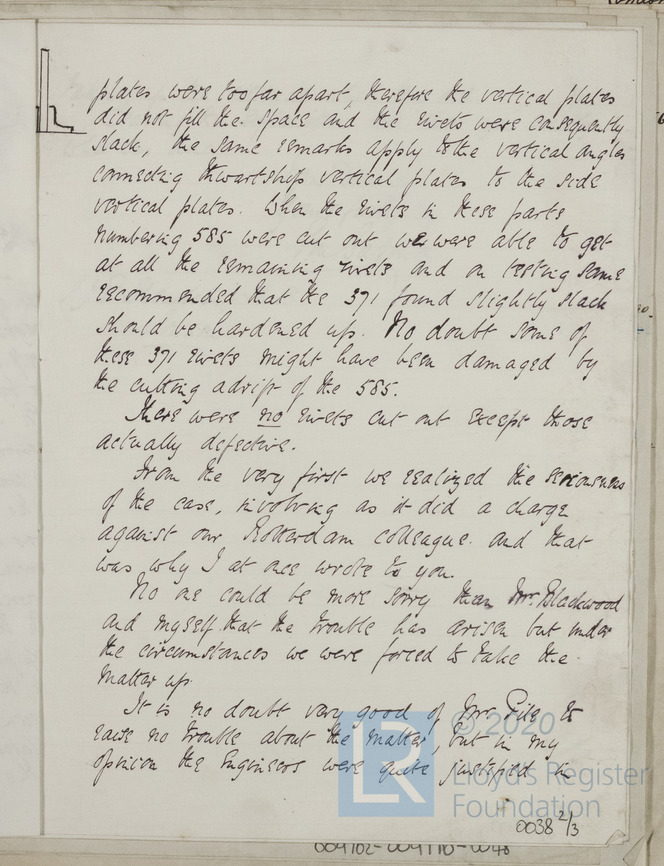 plates were too far apart, therefore the vertical plates
did not fill the space and the rivets were consequently
slack, the same remarks apply to the vertical angles
connecting thwartship vertical plates to the side
vertical plates. When the rivets in these parts
numbering 585 were cut out we were able to get
at all the remaining rivets and on testing same
recommended that the 371 found slightly slack
should be hardened up. No doubt some of
these 371 rivets might have been damaged by
the cutting adrift of the 585.
There were no rivets cut out except those
actually defective.
From the very first we realized the seriousness
of the case, involving as it did a charge
against our Rotterdam colleague. and that
was why I at once wrote to you.
No one could be more sorry than Mr. Blackwood
and myself that the trouble has arisen but under
the circumstances we were forced to take the
matter up.
It is no doubt very good of Mr. Pile to
raise no trouble about the matter, but in my
opinion the Engineers were quite justified in
© 2020
Lloyd's Register
Foundation
LR
0038 2/3